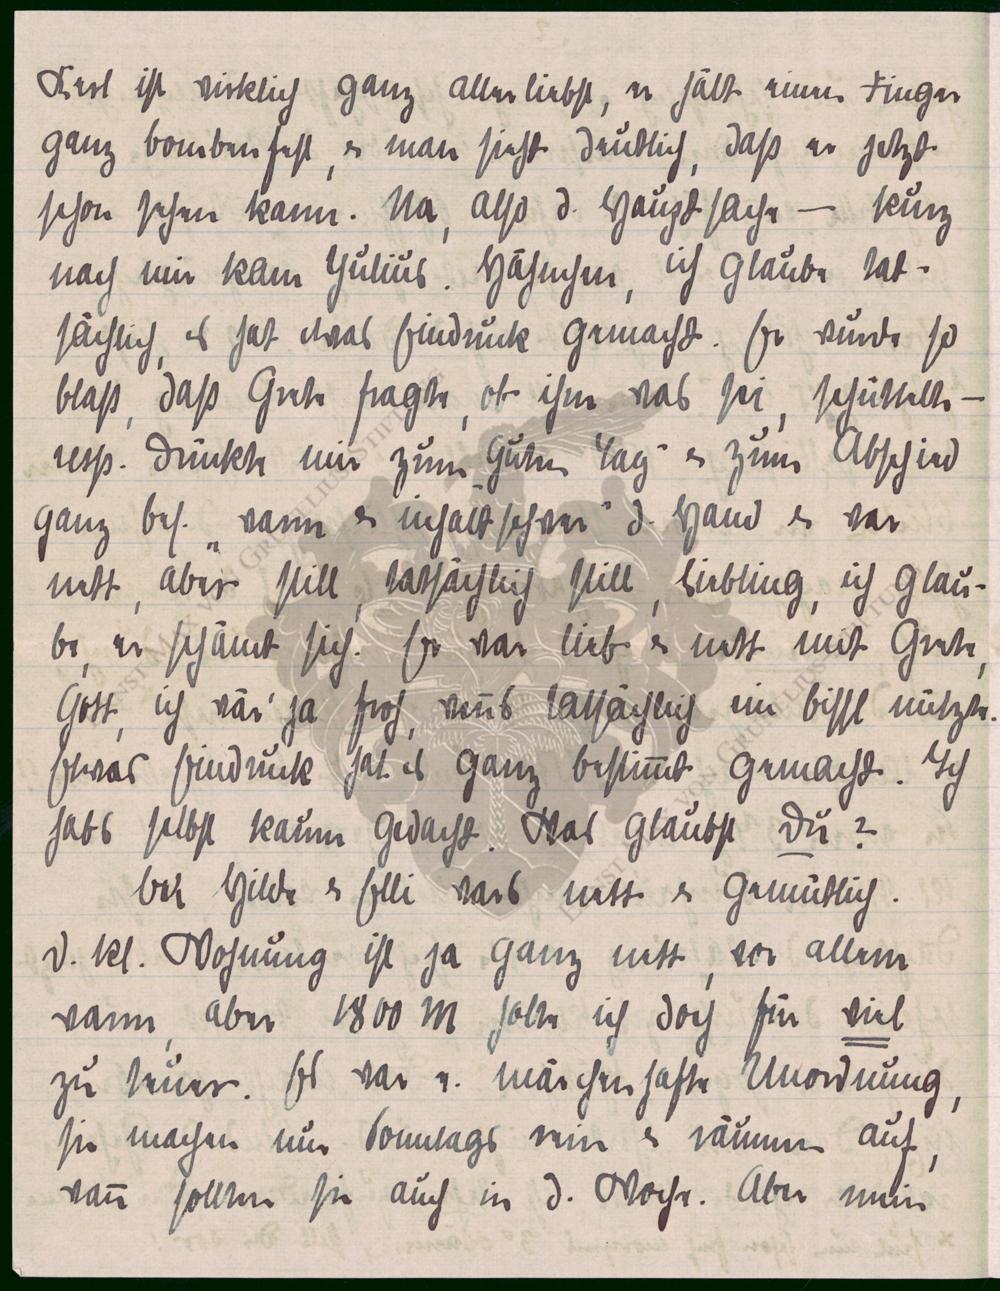 Kerl ist wirklich ganz allerliebst, er hält einen Finger
ganz bombenfest, & man sieht deutlich, daß er jetzt
schon sehen kann. Na, also d. Hauptsache — kurz
nach mir kam Julius. Hähnchen, ich glaube tat-
sächlich, es hat etwas Eindruck gemacht. Er wurde so
blaß, daß Grete fragte, ob ihm was sei, schüttelte —
resp. drückte mir zum „Guten Tag" & zum Abschied
ganz bes. „warm & inhaltschwer" d. Hand & war
nett, aber still, tatsächlich still, Liebling, ich glau-
be, er schämt sich. Er war lieb & nett mit Grete,
Gott, ich wär' ja froh, wenn's tatsächlich ein bissl nützte.
Etwas Eindruck hat es ganz bestimmt gemacht. Ich
habs selbst kaum gedacht. Was glaubst Du?
Bei Hilde & Elli wars nett & gemütlich.
D. kl. Wohnung ist ja ganz nett, vor allem
warm, aber 1800 M halte ich doch für viel
zu teuer. Es war e. märchenhafte Unordnung,
sie machen nur Sonntags rein & räumen auf,
wann sollten sie auch in d. Woche. Aber mein
ERNST-MAX VON GRUNELIUS-STIFTUNG
ERNST-MAX VON GRUNELIUS-STIFTUNG